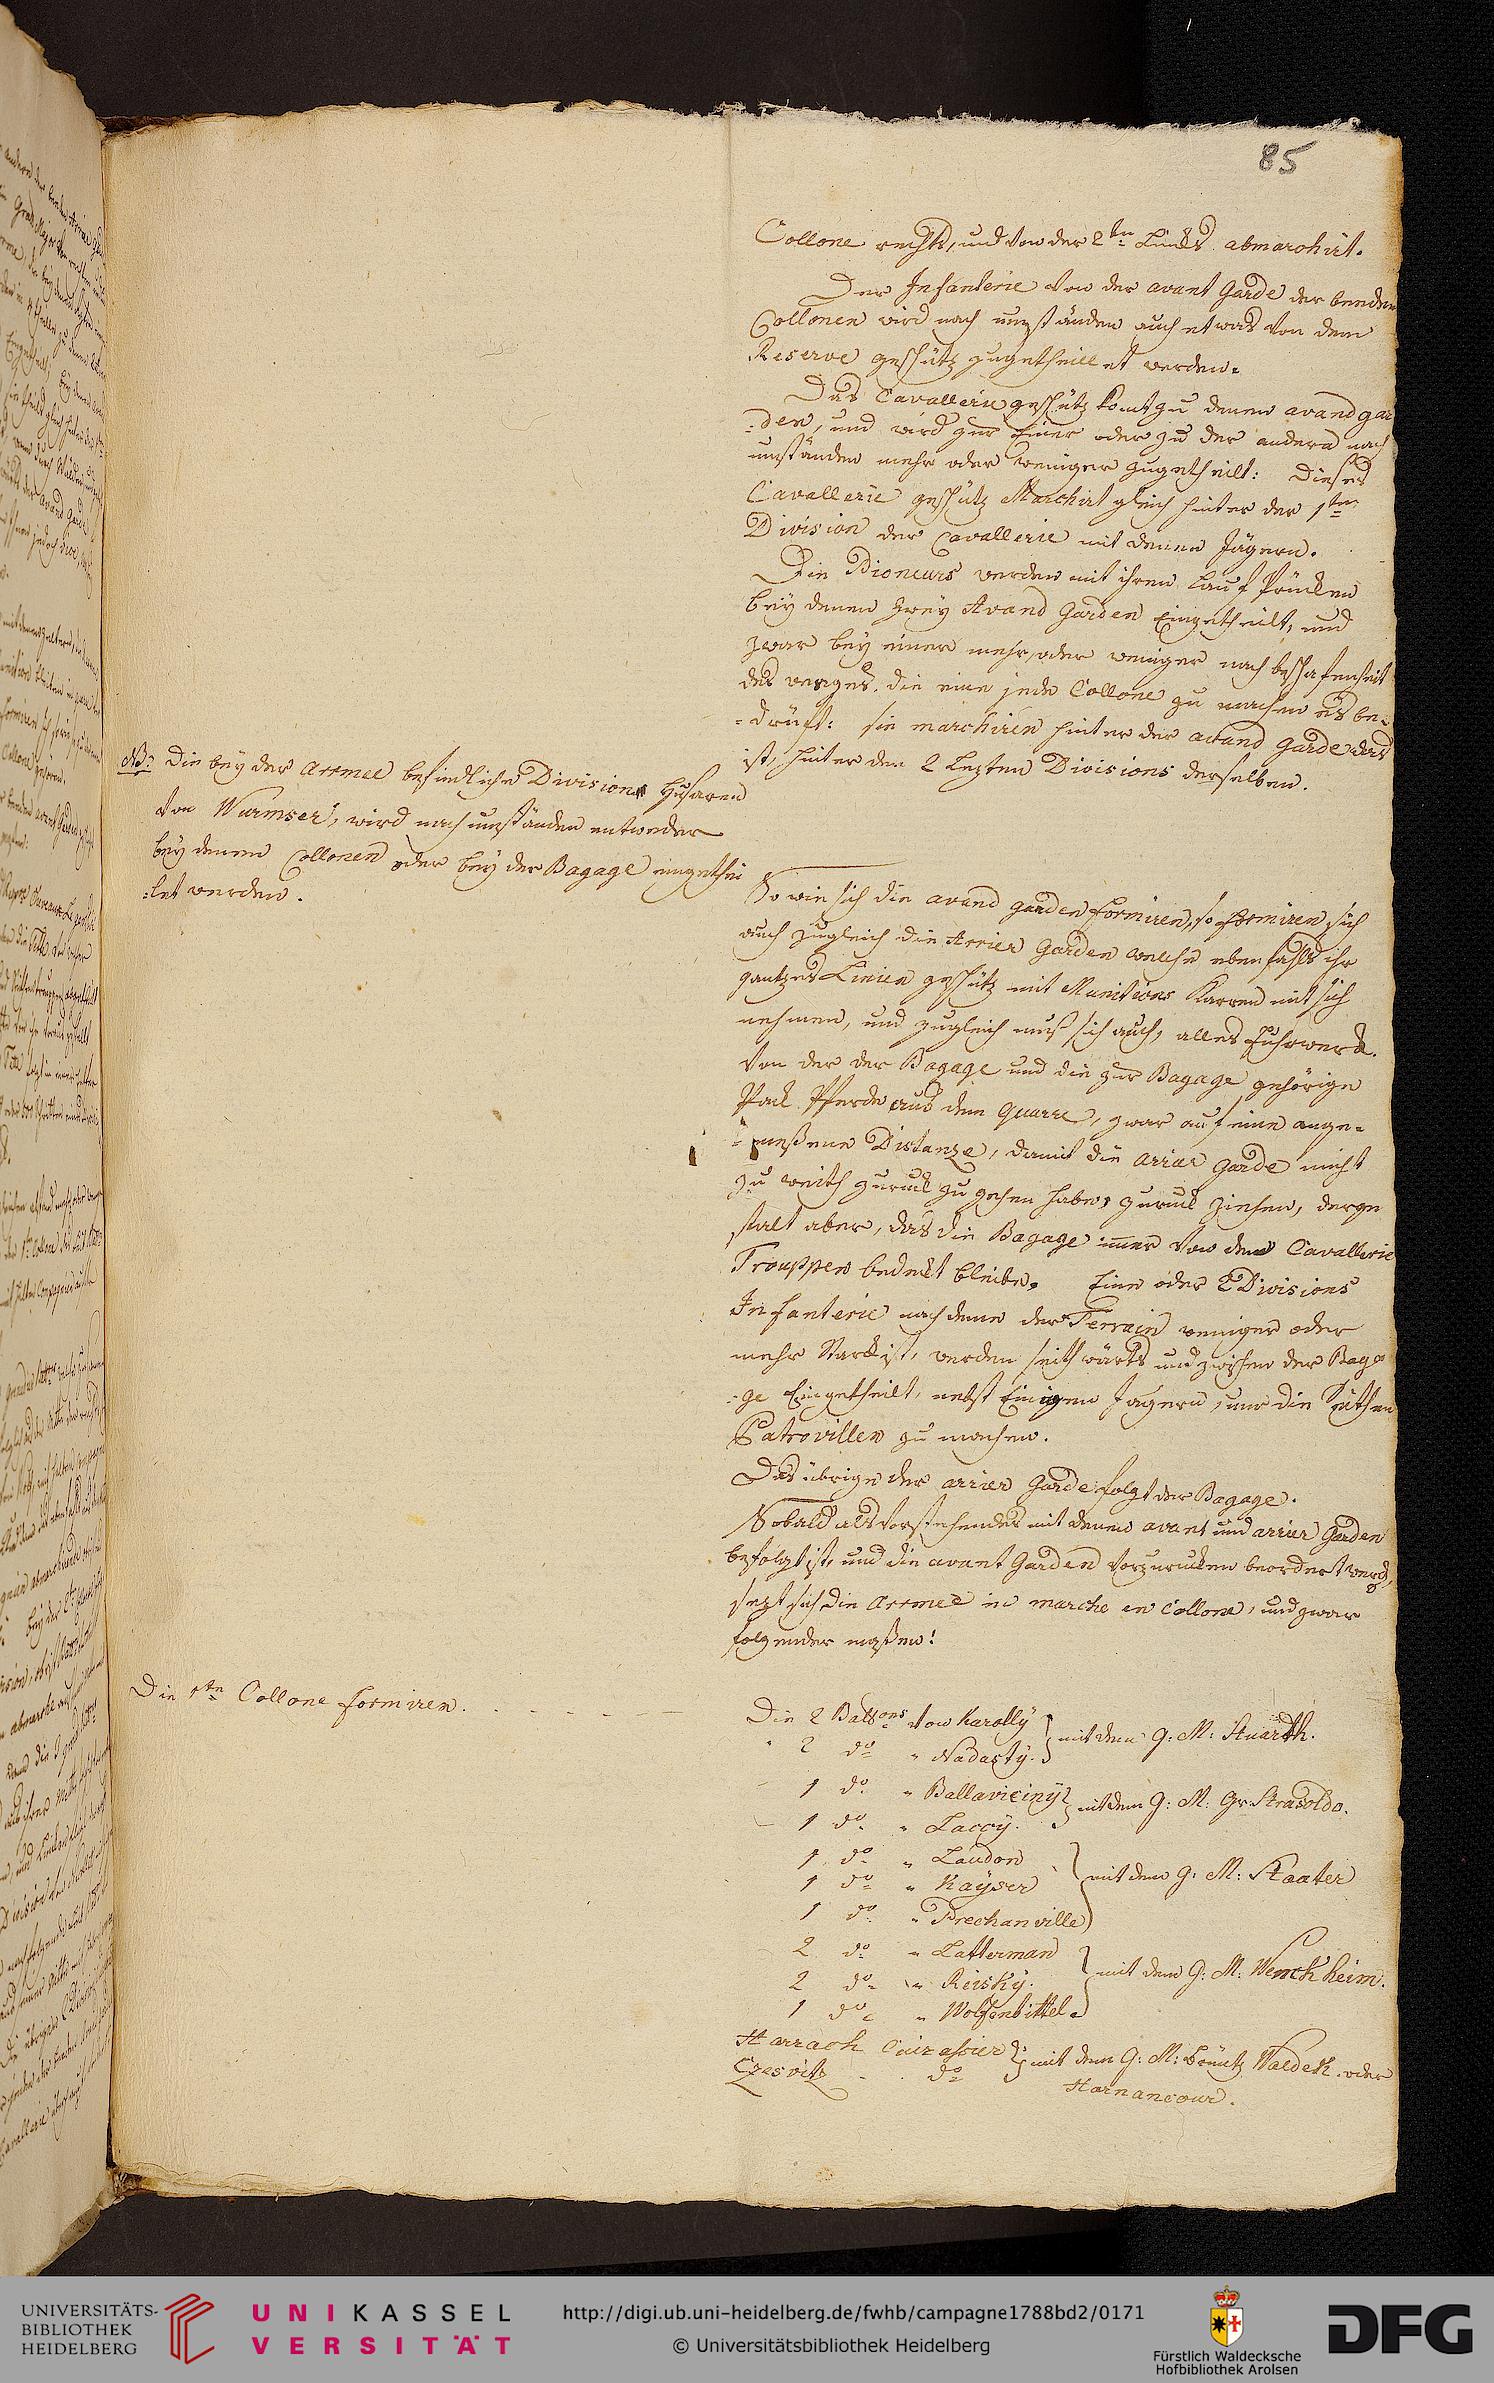 85
Collone rechts, und von der 2ten Lincks abmarchirt.
Der Infanterie von der avant Garde der beeden
Collonen wird nach umständen auch etwas von dem
Reserve geschütz zugetheillet werden.
Das Cavallerie geschütz komt zu denen avand gar
:den, und wird zur Einer oder zu der andern nach
umständen mehr oder weniger zugetheilt: Dieses
Cavallerie geschütz Marchirt gleich hinter der 1ten
Division der Cavallerie mit denen Jägern.
Die Pioneurs werden mit ihren Lauf Brücken
bey denen zwey Avand Garden Eingetheilt, und
zwar bey einer mehr, oder weniger nach beschafenheit
des weeges, die eine jede Collone zu machen es be-
-dürft: sie marchiren hinter der avand Garde das
ist, hinter den 2 lezten Divisions derselben.
NB: Die bey der Armee befindliche Division Husaren
von Wurmser, wird nach umständen entweder
bey denen Collonen oder bey der Bagage eingethei
:let werden.
So wie sich die avand garden formiren, so formiren sich
auch zugleich die Arrier Garden welche ebenfahls ihr
gantzes Linien geschütz mit Munitions Karren mit sich
nehmen, und zugleich muß sich auch, alles Fuhrwerck
von der der Bagage und die zur Bagage gehörige
Pack Pferde aus dem Quarre, zwar auf eine ange-
:meßene Distanze, damit die arrier garde nicht
zu weith zuruck zu gehen habe, zuruck ziehen, derge
stalt aber, das die Bagage immer von denen Cavallerie
Trouppen bedeckt bleibe. Eine oder 2 Divisions
Infanterie nach deme der Terrain weniger oder
mehr Starck ist, werden seithwärts und zwischen der Baga
:ge Eingetheilt, nebst Einigen Jägern, um die Seithen
Patrovillen zu machen.
Das übrige der arrier Garde folgt der Bagage.
Sobald als vorstehendes mit denen avant und arrier Garden
befolgt ist, und die avant Garden vorzurucken beordert werd,
sezt sich die Armee in marche en Collone, und zwar
folgender maßen!
Die 1te Collone formiren. . - - - - - -
Die 2 Battons von Karolly
" 2 do " Nadasty. } mit dem G: M: Stuardh.
1 do " Ballavicinÿ
1 do " Lascy. } mit dem G: M: Gr. Strasoldo.
1 do " Laudon
1 do " Kayser } mit dem G: M: Staader
1 do " Prechanville
2 do " Latterman
2 do " Reisky. } mit dem G: M: Wenckheim.
1 do " Wolfenbittel
Harrach Cuirassier
Czesvitz - - do } mit dem G: M: Printz Waldek. oder
Harnancour.
UNIVERSITÄTS-
BIBLIOTHEK
HEIDELBERG
UNIKASSEL
VERSITÄT
http://digi.ub.uni-heidelberg.de/fwhb/campagne1788bd2/0171
© Universitätsbibliothek Heidelberg
Fürstlich Waldecksche
Hofbibliothek Arolsen
DFG